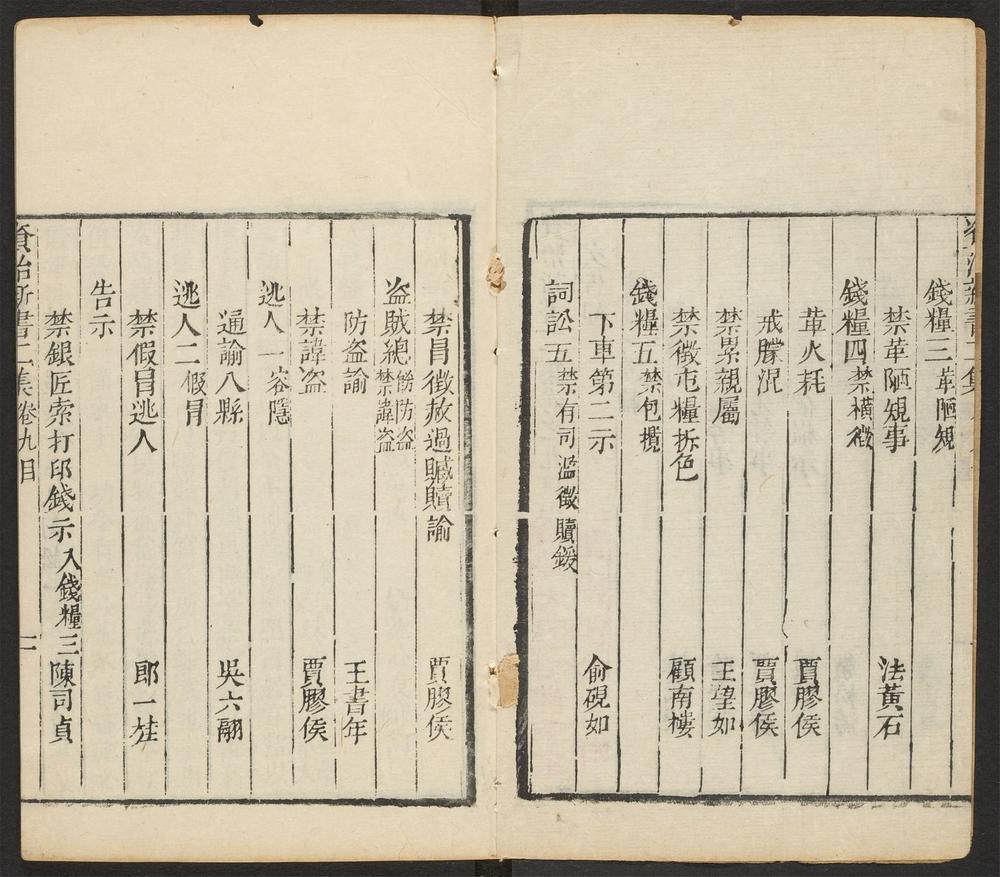 資治新書二集
錢糧三革陋規
禁革陋規事 法黃石
錢糧四禁橫徵
革火耗 賈膠侯
戒朦混 賈膠侯
禁累親屬 王望如
禁徵屯糧拆色 顧南樓
錢糧五禁包攬
下車第二示 俞硯如
詞訟五禁有司濫徵贖鍰
禁冒徵赦過贓贖諭 賈膠侯
盗賊總勝防盗禁諱盗
防盗諭 王書年
禁諱盗 賈膠侯
逃人一容隱
通諭八縣 吳六翮
逃人二假冐
禁假冐逃人 郎一𡊮
告示
禁銀匠索打印錢示入錢糧三 陳司貞
資治新書二集卷九目 二